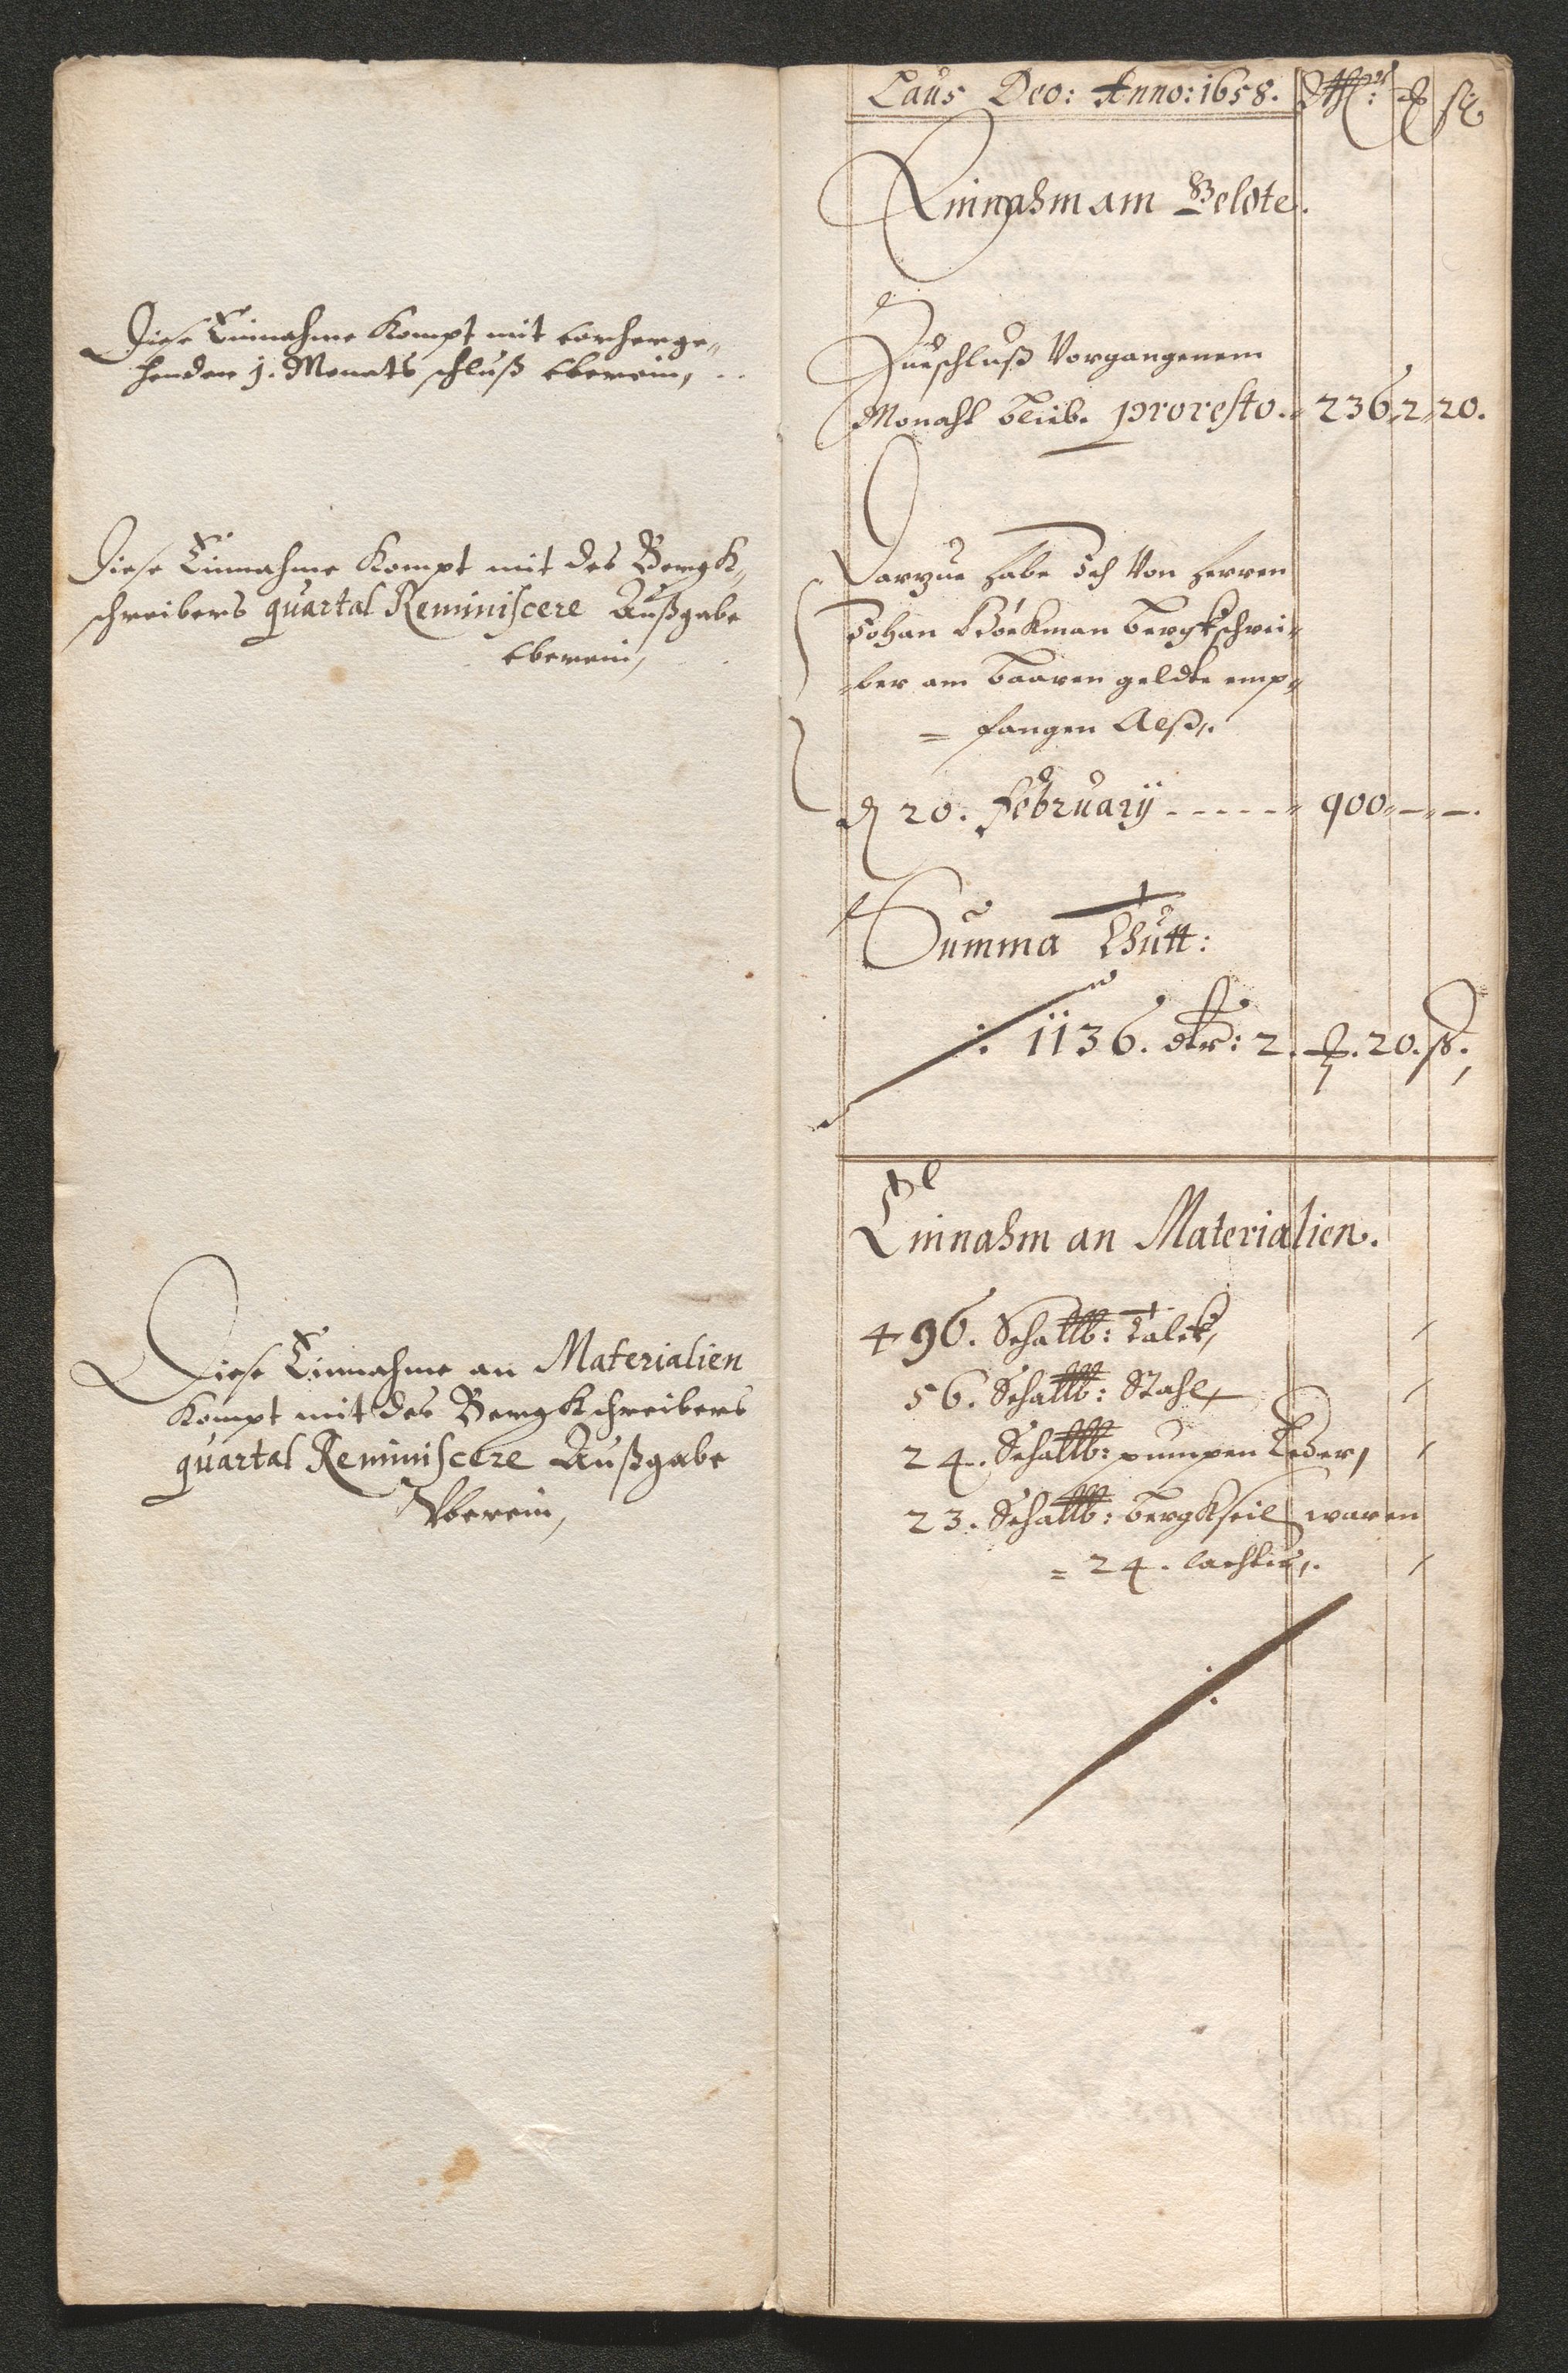 Diese Einnahme Kompt mit vorherge„
henden 1. Monats schluß vberein,
Diese Einnahme Kompt mit des Bergk„
schreibers quartal Reminiscere Außgabe
vberein,
Diese Einnahme an Materialien
Kompt mit des Bergkschreibers
quartal Reminiscere Außgabe
Vberein,
Laus Deo: Anno: 1658.
Einnahm am Geldte.
Zueschluß Vorgangenem
Monaht blieb. pro resto. 236 2 20.
Darzue habe Ich Von Herren
Johan Böekman bergkschrei„
„ber am baaren geldte emp„
= fangen Alß,.
d 20. February ----- 900 — —.
Summa Thutt:
1136. dlr: 2. 20. ß.
Einnahm an Materialien.
496. Schallb: Talck,
56. Schallb: Stahl,
24. Schallb: pumpen Leder,
23. Schallb: bergkseil waren
= 24. lachter,.